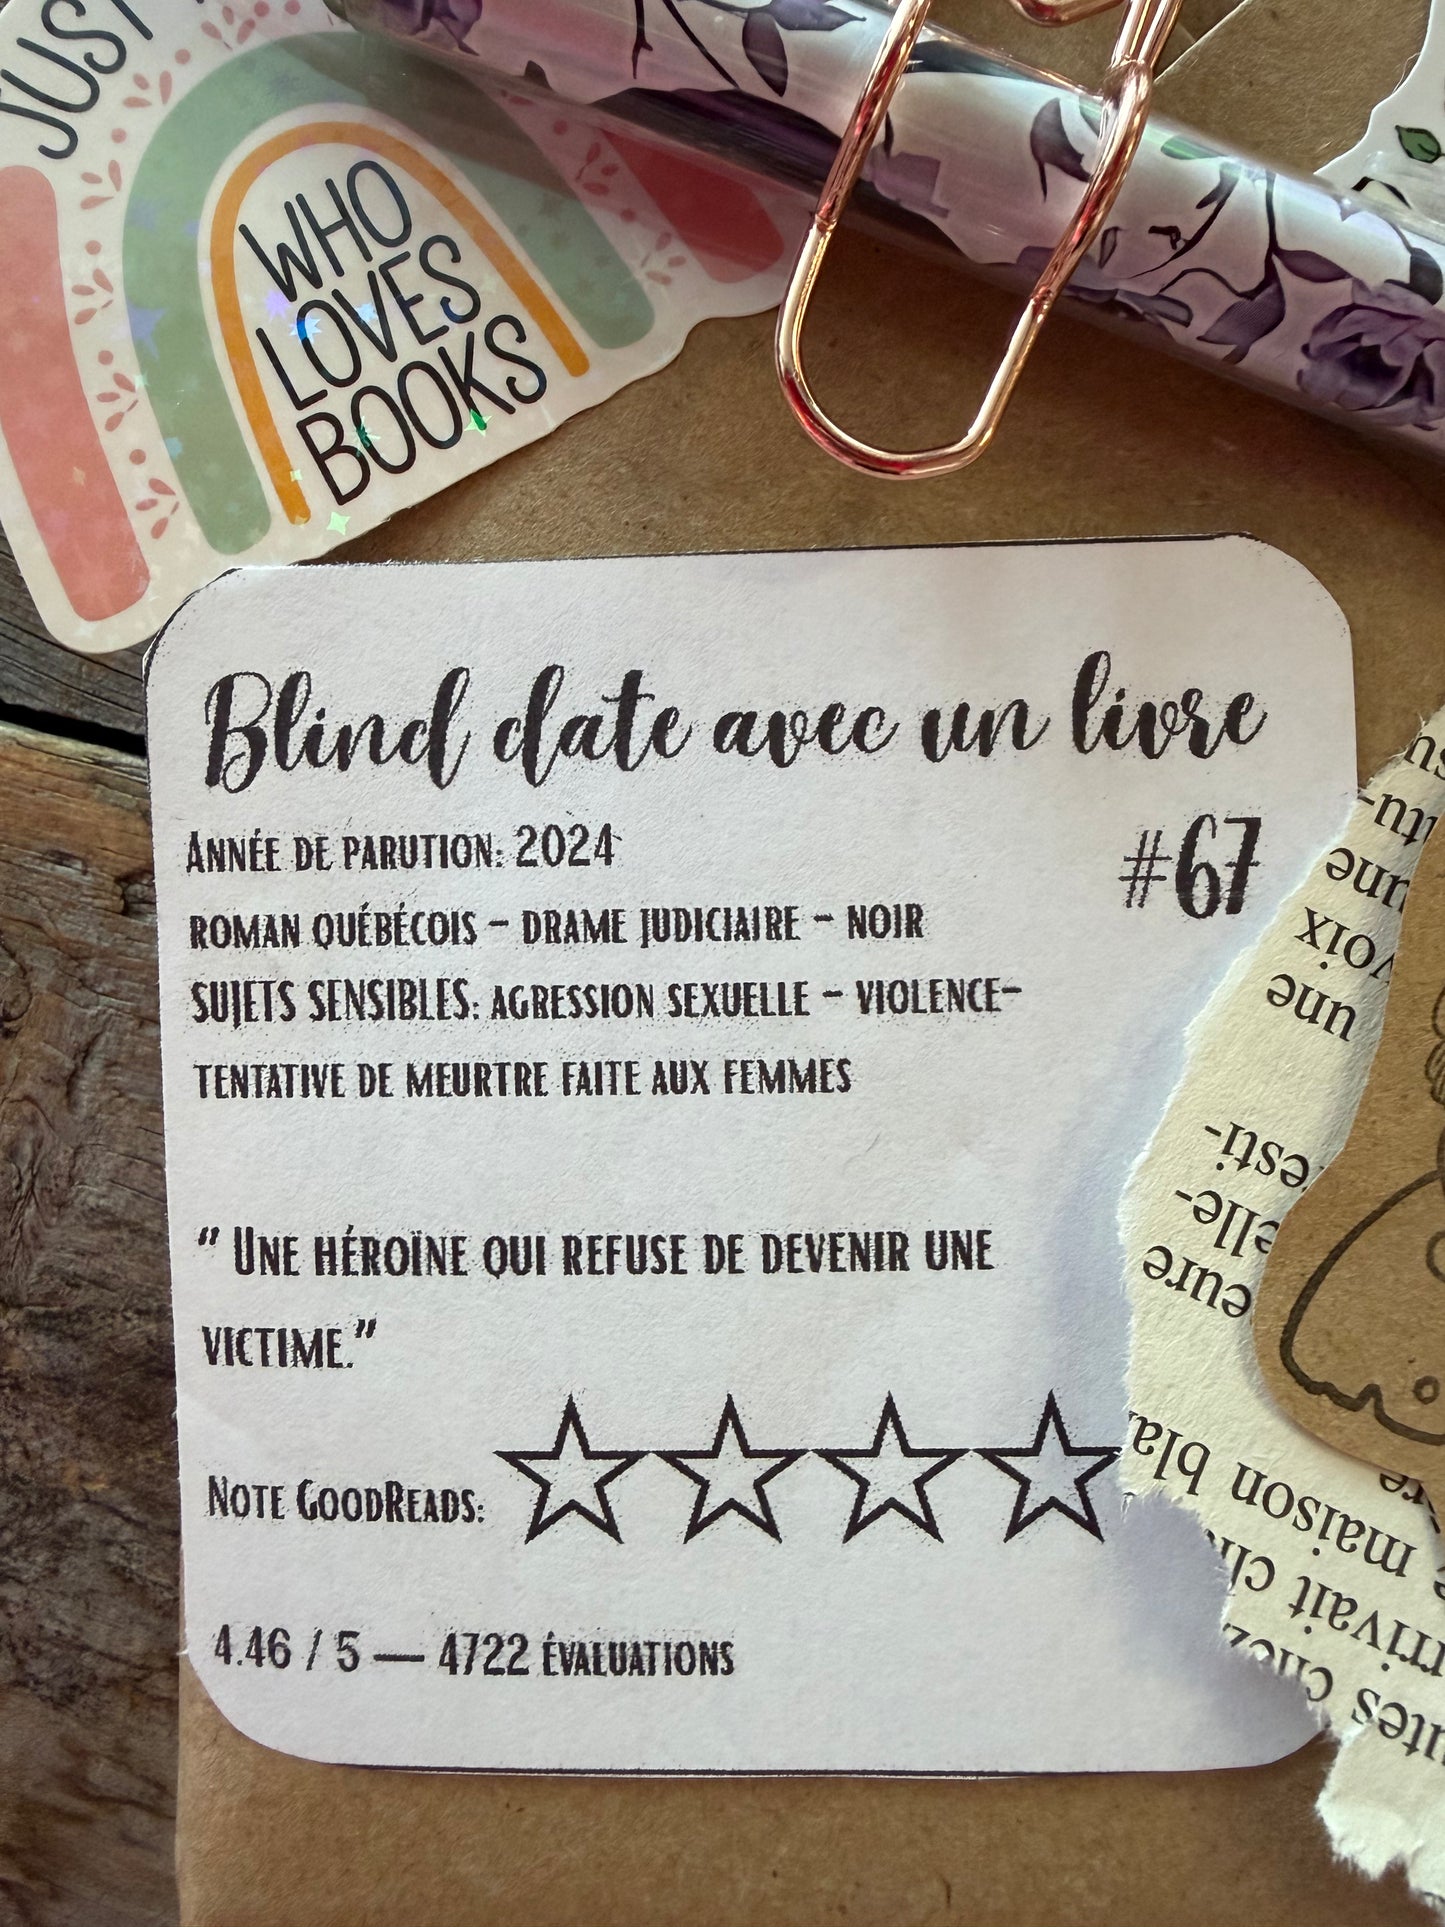 JUST
WHO
LOVES
BOOKS
Blind date avec un livre
Année de parution: 2024
#67
roman québécois - drame judiciaire - noir
SUJETS SENSIBLES: agression sexuelle - violence-
tentative de meurtre faite aux femmes
" Une héroïne qui refuse de devenir une
victime."
Note GoodReads:
4.46 / 5 — 4722 évaluations
une
voix
une
elle-
eure
maison